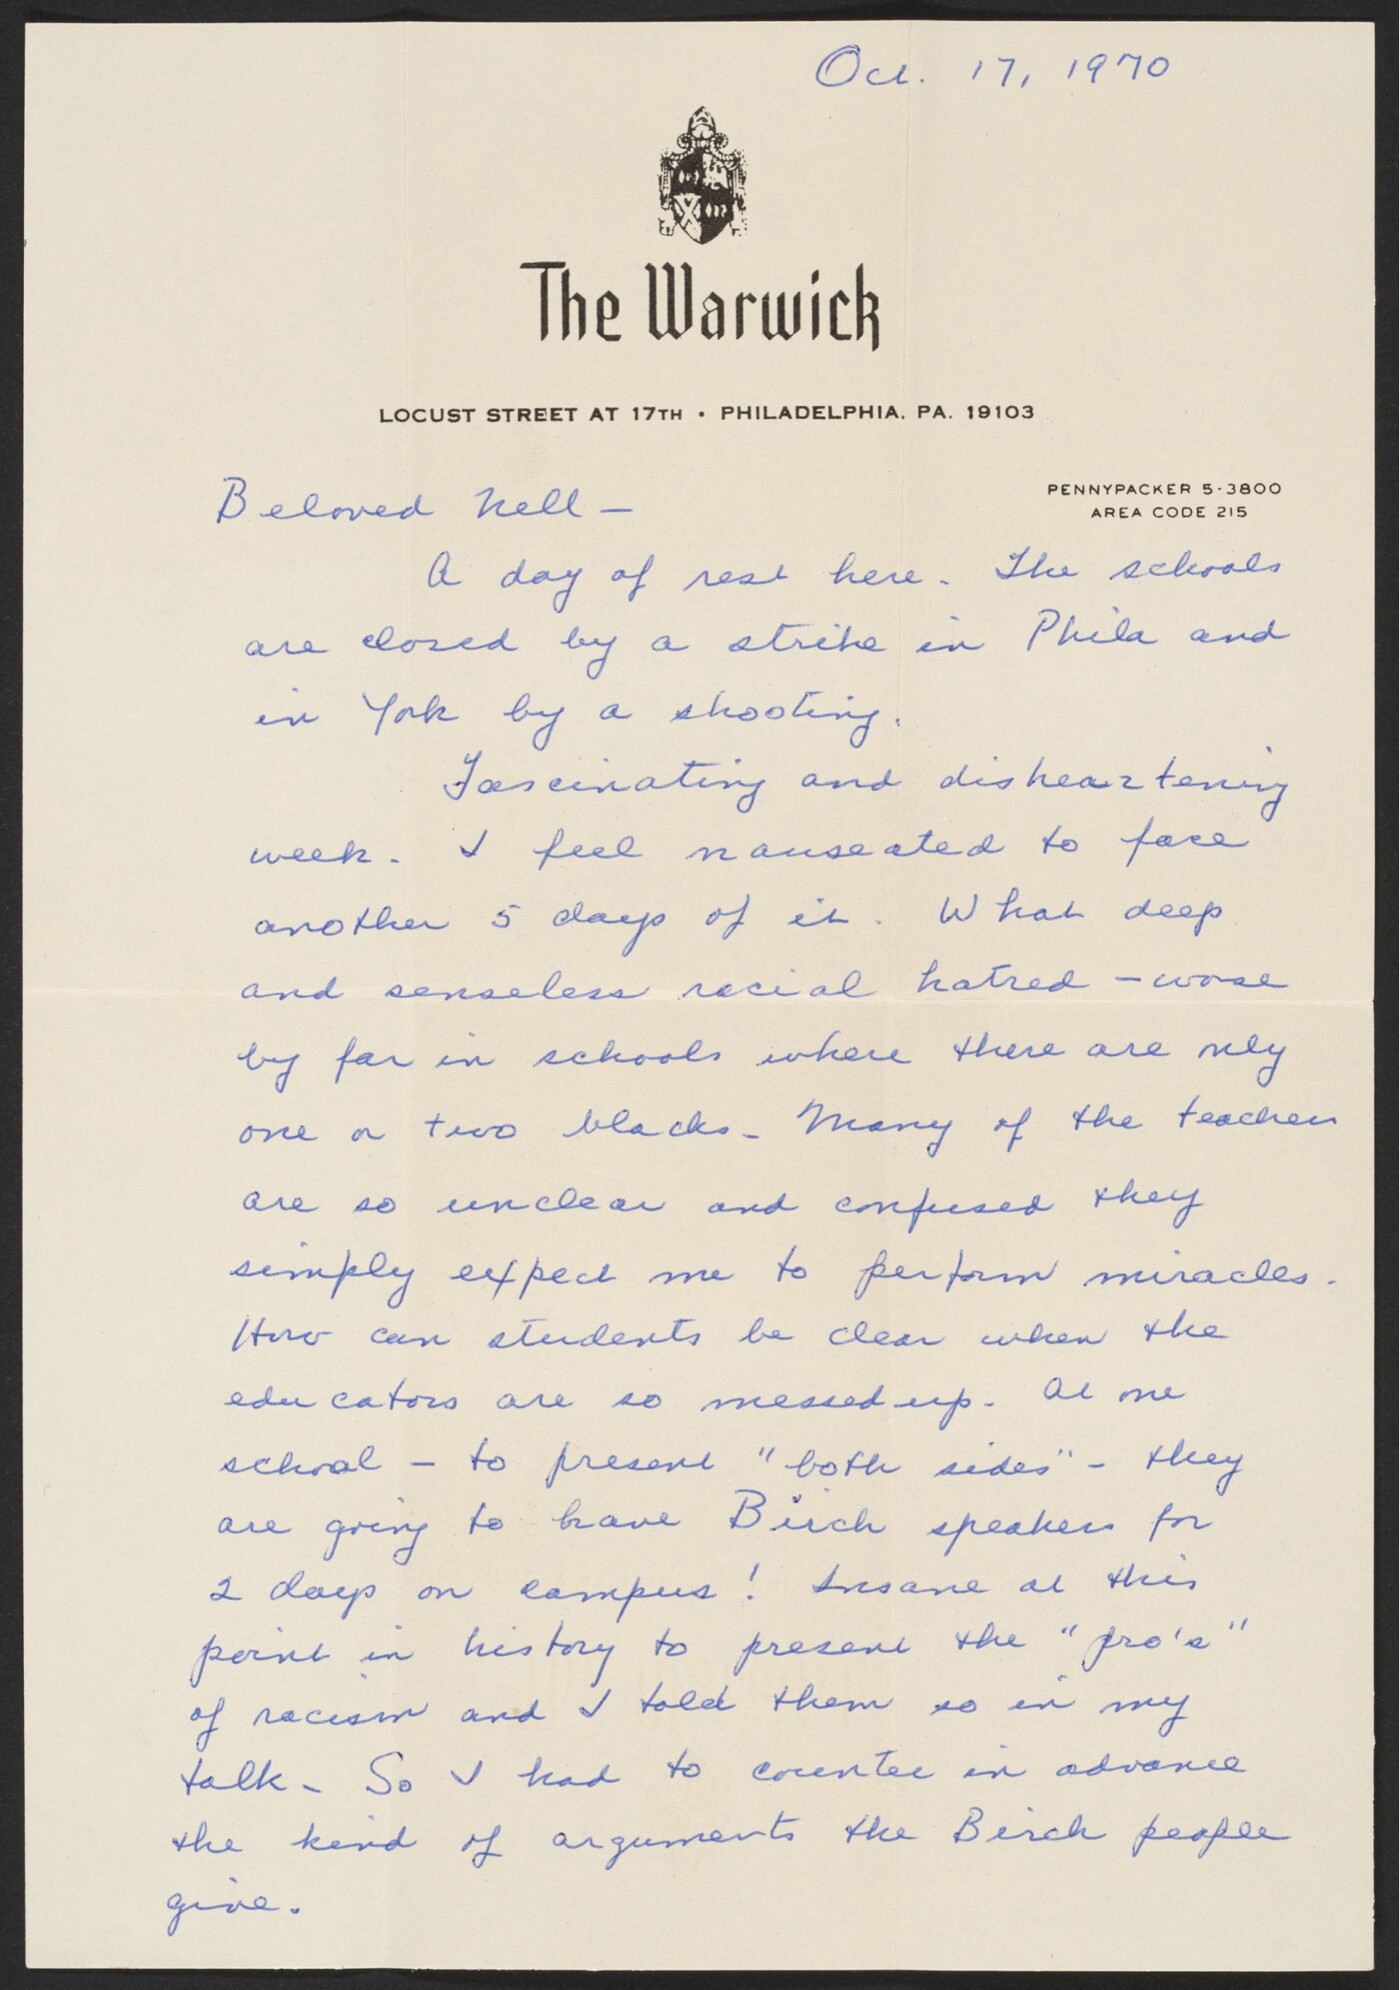 Oct. 17, 1970
The Warwick
LOCUST STREET AT 17TH • PHILADELPHIA, PA. 19103
PENNYPACKER 5-3800
AREA CODE 215
Beloved Nell —
A day of rest here. The schools
are closed by a strike in Phila and
in York by a shooting.
Fascinating and disheartening
week. I feel nauseated to face
another 5 days of it. What deep
and senseless racial hatred — worse
by far in schools where there are only
one or two blacks. Many of the teachers
are so unclear and confused they
simply expect me to perform miracles.
How can students be clear when the
educators are so messed up. At one
school — to present "both sides" — they
are going to have Birch speakers for
2 days on campus! Insane at this
point in history to present the "pro's"
of racism and I told them so in my
talk. So I had to counter in advance
the kind of arguments the Birch people
give.